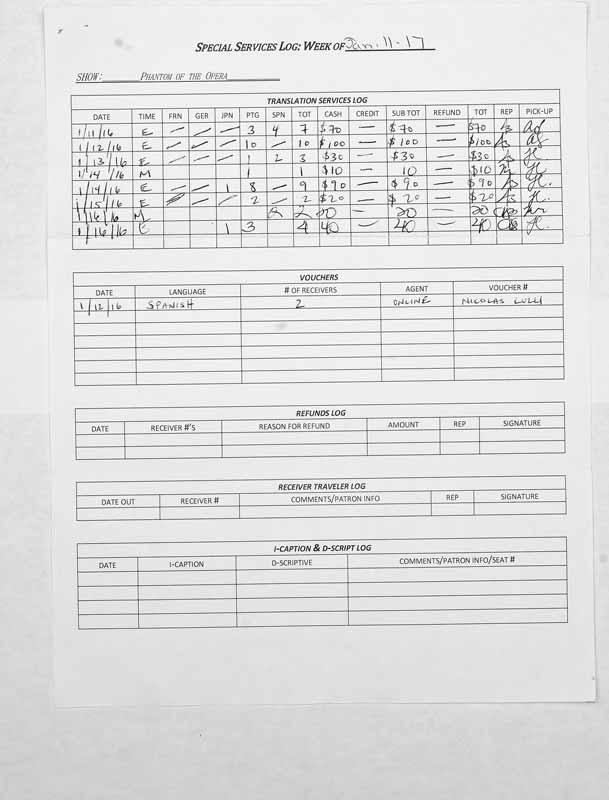 SPECIAL SERVICES LOG: WEEK OF Jan. 11-17
SHOW: PHANTOM OF THE OPERA
TRANSLATION SERVICES LOG
DATE TIME FRN GER JPN PTG SPN TOT CASH CREDIT SUB TOT REFUND TOT REP PICK-UP
1/11/16 E — — — 3 4 7 $70 — $70 — $70
1/12/16 E — — — 10 — 10 $100 — $100 — $100
1/13/16 E — — — 1 2 3 $30 — $30 — $30
1/14/16 M 1 1 $10 — 10 — $10
1/14/16 E — — 1 8 — 9 $90 — $90 — $90
1/15/16 E — — 2 — 2 $20 — $20 — $20
1/16/16 M 2 2 20 — 20 — 20
1/16/16 E 1 3 4 40 — 40 — 40
VOUCHERS
DATE LANGUAGE # OF RECEIVERS AGENT VOUCHER #
1/12/16 SPANISH 2 ONLINE NICOLAS LULLI
REFUNDS LOG
DATE RECEIVER #'S REASON FOR REFUND AMOUNT REP SIGNATURE
RECEIVER TRAVELER LOG
DATE OUT RECEIVER # COMMENTS/PATRON INFO REP SIGNATURE
I-CAPTION & D-SCRIPT LOG
DATE I-CAPTION D-SCRIPTIVE COMMENTS/PATRON INFO/SEAT #